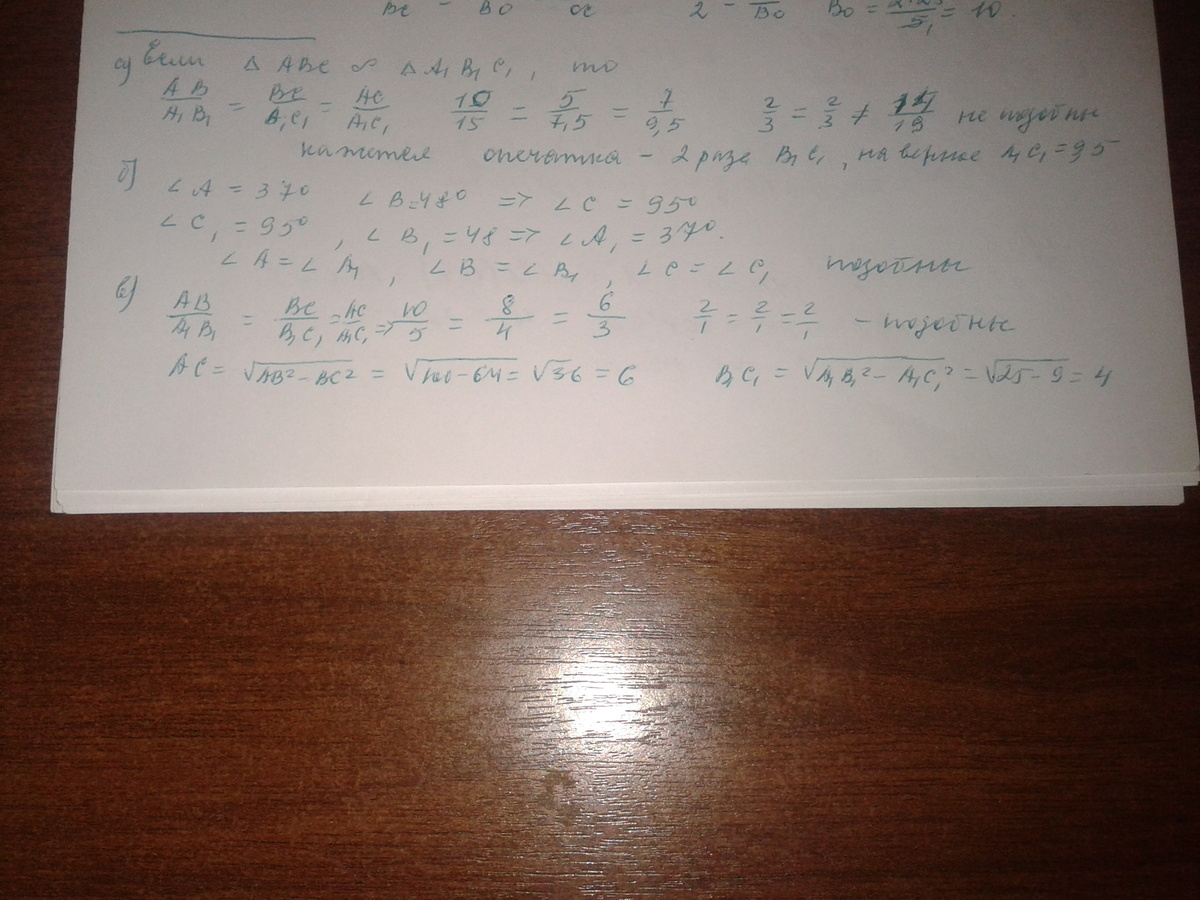 BC = BO OC 2 = BO BO = 2·25/5 = 10.
а) Если △ ABC ∞ △ A₁B₁C₁, то
AB/A₁B₁ = BC/A₁C₁ = AC/A₁C₁ 10/15 = 5/7,5 = 7/9,5 2/3 = 2/3 ≠ 14/19 не подобны
кажется опечатка – 2 раза B₁C₁, наверное A₁C₁ = 9,5
б) ∠A = 37° ∠B = 48° => ∠C = 95°
∠C₁ = 95°, ∠B₁ = 48 => ∠A₁ = 37°.
∠A = ∠A₁, ∠B = ∠B₁, ∠C = ∠C₁ подобны
в) AB/A₁B₁ = BC/B₁C₁ = AC/A₁C₁ => 10/5 = 8/4 = 6/3 2/1 = 2/1 = 2/1 – подобны
AC = √AB² – BC² = √100 – 64 = √36 = 6 B₁C₁ = √A₁B₁² – A₁C₁² = √25 – 9 = 4